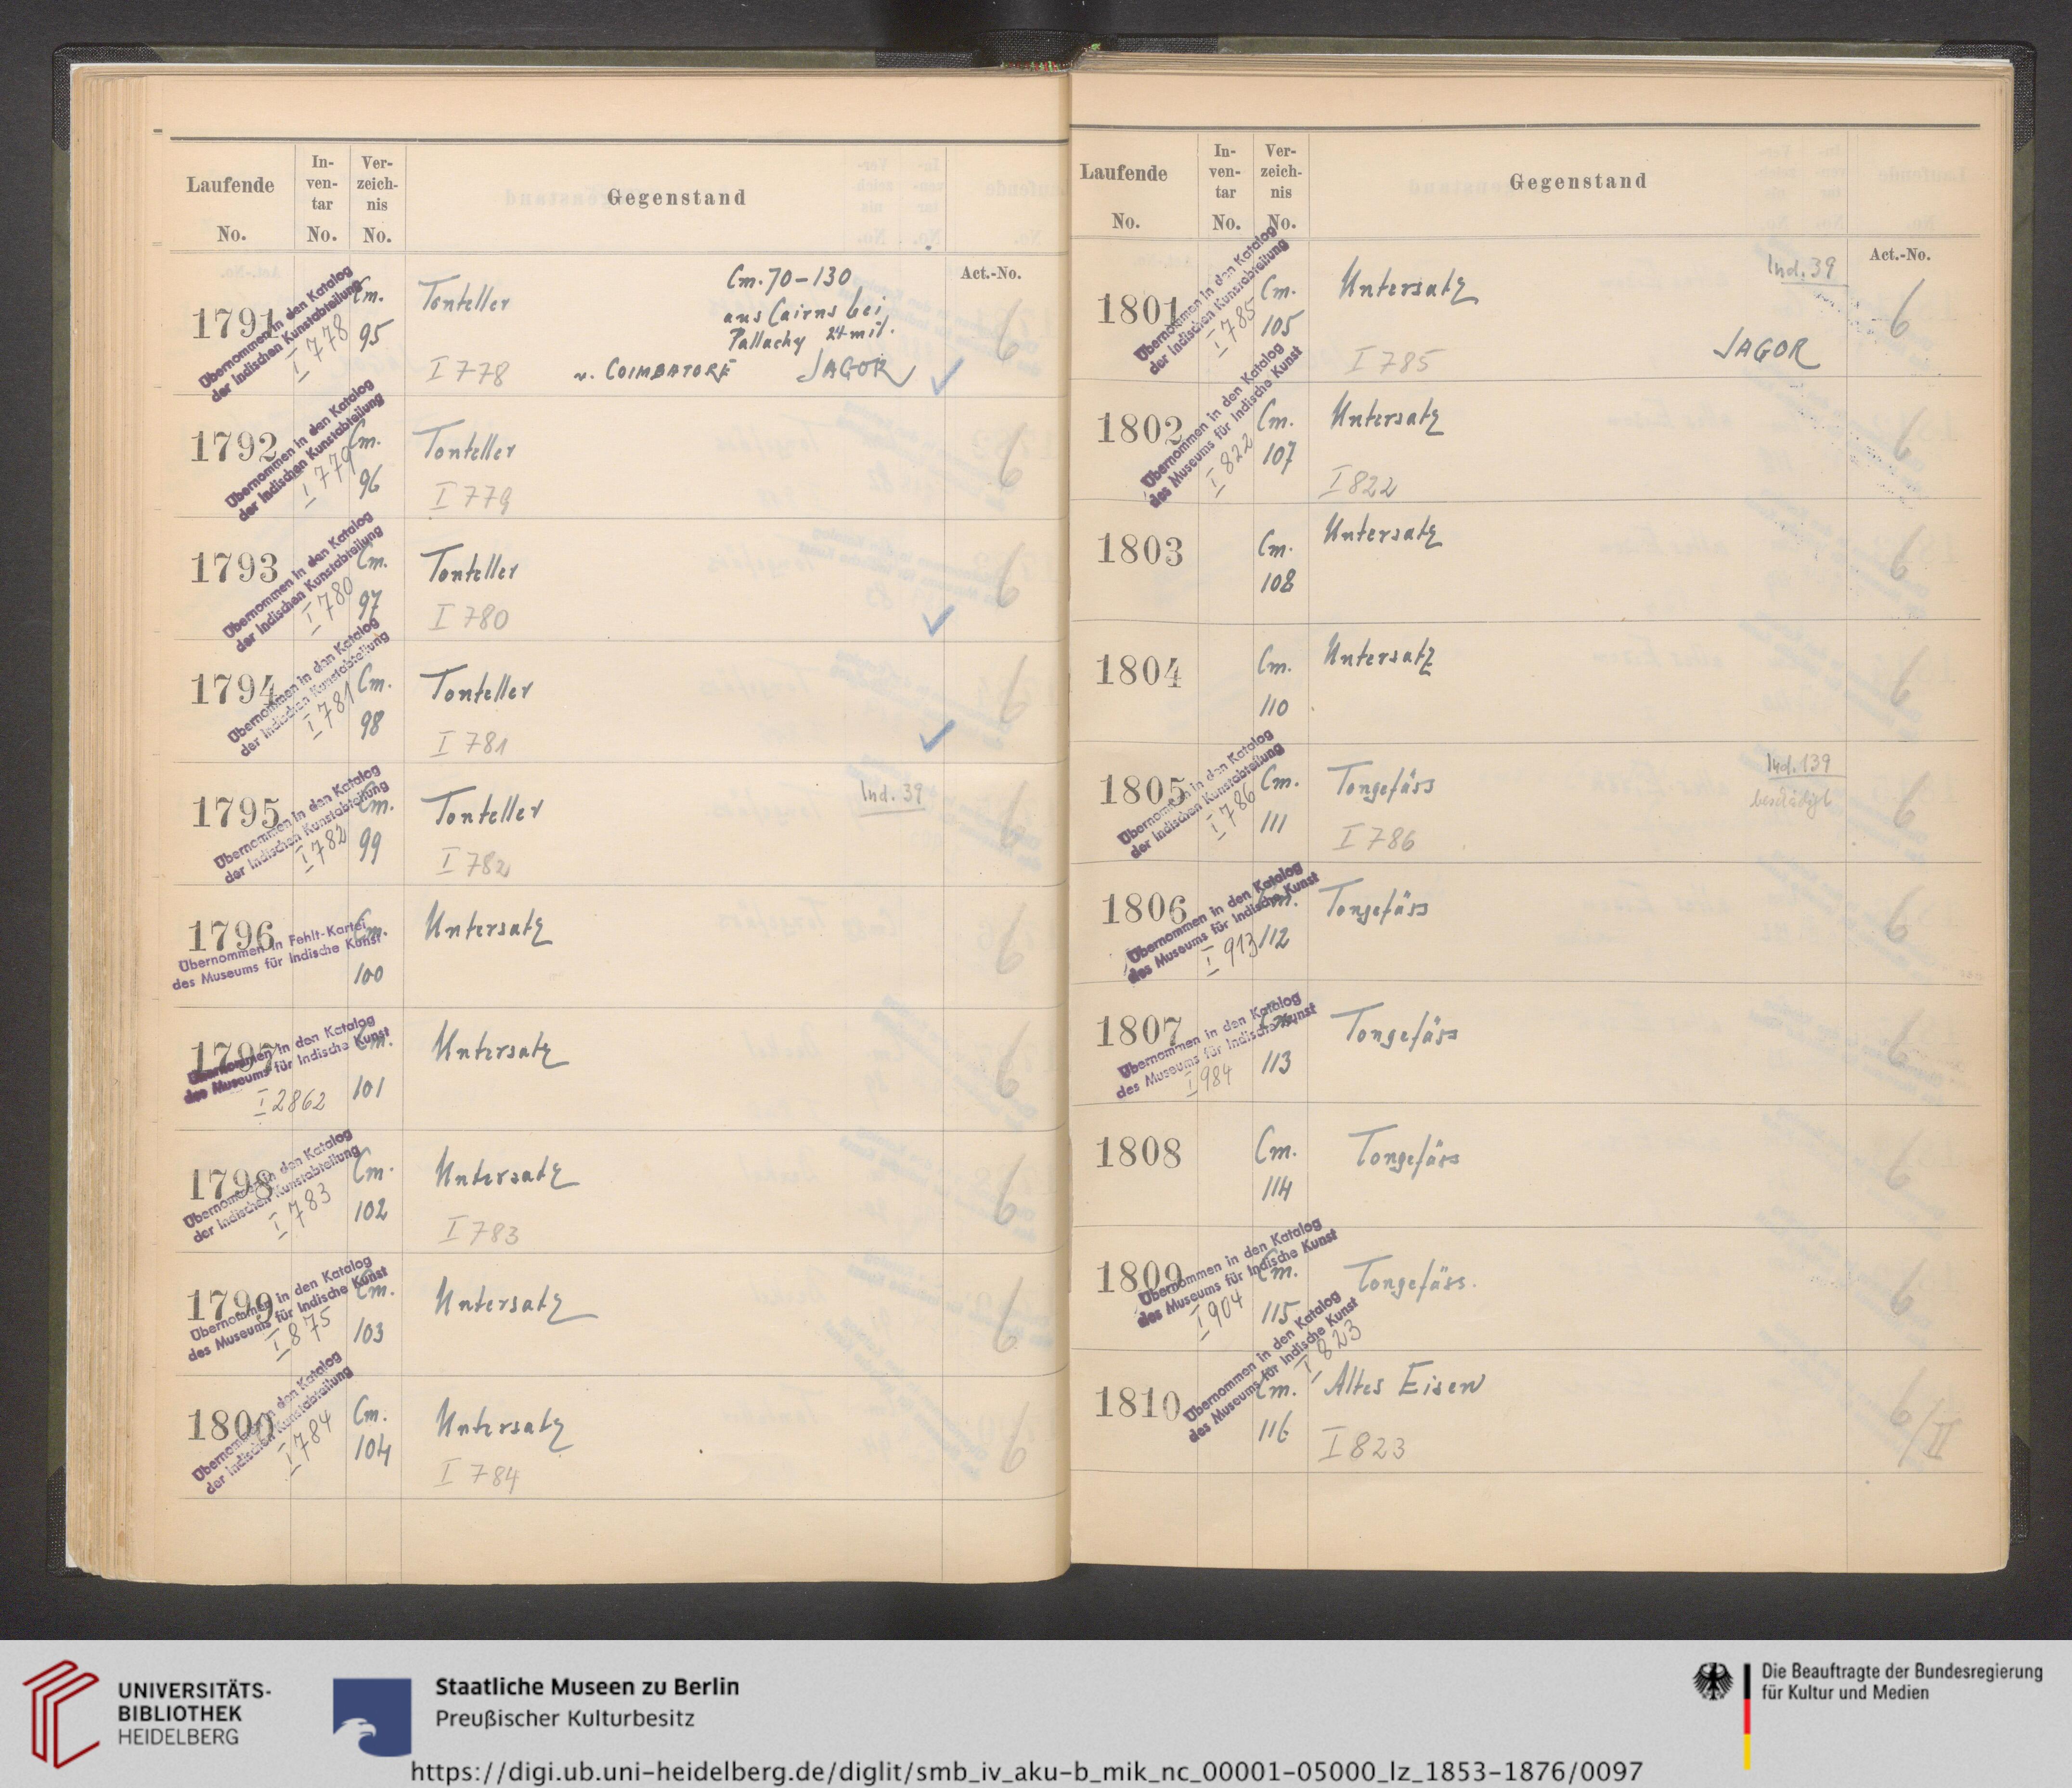 Laufende No.
In-
ven-
tar
No.
Ver-
zeich-
nis
No.
Gegenstand
Act.-No.
1791
Übernommen in den Katalog
der Indischen Kunstabteilung
I 778
Cm.
95
Tonteller
Cm. 70-130
aus Cairns bei
Pallachy 24 mil.
I 778
v. COIMBATORE
JAGOR
6
1792
Übernommen in den Katalog
der Indischen Kunstabteilung
I 779
Cm.
96
Tonteller
I 779
6
1793
Übernommen in den Katalog
der Indischen Kunstabteilung
I 780
Cm.
97
Tonteller
I 780
6
1794
Übernommen in den Katalog
der Indischen Kunstabteilung
I 781
Cm.
98
Tonteller
I 781
6
1795
Übernommen in den Katalog
der Indischen Kunstabteilung
I 782
Cm.
99
Tonteller
Ind. 39
I 782
6
1796
Übernommen in Fehlt-Kartei
des Museums für Indische Kunst
Cm.
100
Untersatz
6
1797
Übernommen in den Katalog
des Museums für Indische Kunst
I 2862
Cm.
101
Untersatz
6
1798
Übernommen in den Katalog
der Indischen Kunstabteilung
I 783
Cm.
102
Untersatz
I 783
6
1799
Übernommen in den Katalog
des Museums für Indische Kunst
I 875
Cm.
103
Untersatz
6
1800
Übernommen in den Katalog
der Indischen Kunstabteilung
I 784
Cm.
104
Untersatz
I 784
6
Laufende No.
In-
ven-
tar
No.
Ver-
zeich-
nis
No.
Gegenstand
Act.-No.
1801
Übernommen in den Katalog
der Indischen Kunstabteilung
I 785
Cm.
105
Untersatz
Ind. 39
I 785
JAGOR
6
1802
Übernommen in den Katalog
des Museums für Indische Kunst
I 822
Cm.
107
Untersatz
I 822
6
1803
Cm.
108
Untersatz
6
1804
Cm.
110
Untersatz
6
1805
Übernommen in den Katalog
der Indischen Kunstabteilung
I 786
Cm.
111
Tongefäss
Ind. 139
beschädigt
I 786
6
1806
Übernommen in den Katalog
des Museums für Indische Kunst
I 913
Cm.
112
Tongefäss
6
1807
Übernommen in den Katalog
des Museums für Indische Kunst
I 984
Cm.
113
Tongefäss
6
1808
Cm.
114
Tongefäss
6
1809
Übernommen in den Katalog
des Museums für Indische Kunst
I 904
Cm.
115
Tongefäss.
6
1810
Übernommen in den Katalog
des Museums für Indische Kunst
I 823
Cm.
116
Altes Eisen
I 823
6/II
UNIVERSITÄTS-
BIBLIOTHEK
HEIDELBERG
Staatliche Museen zu Berlin
Preußischer Kulturbesitz
Die Beauftragte der Bundesregierung
für Kultur und Medien
https://digi.ub.uni-heidelberg.de/diglit/smb_iv_aku-b_mik_nc_00001-05000_lz_1853-1876/0097